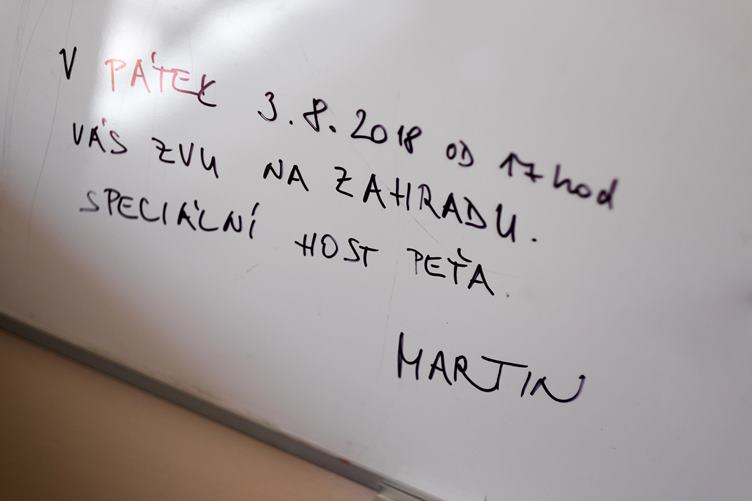 V PÁTEK 3.8.2018 OD 17hod
VÁS ZVU NA ZAHRADU.
SPECIÁLNÍ HOST PEŤA.
MARTIN